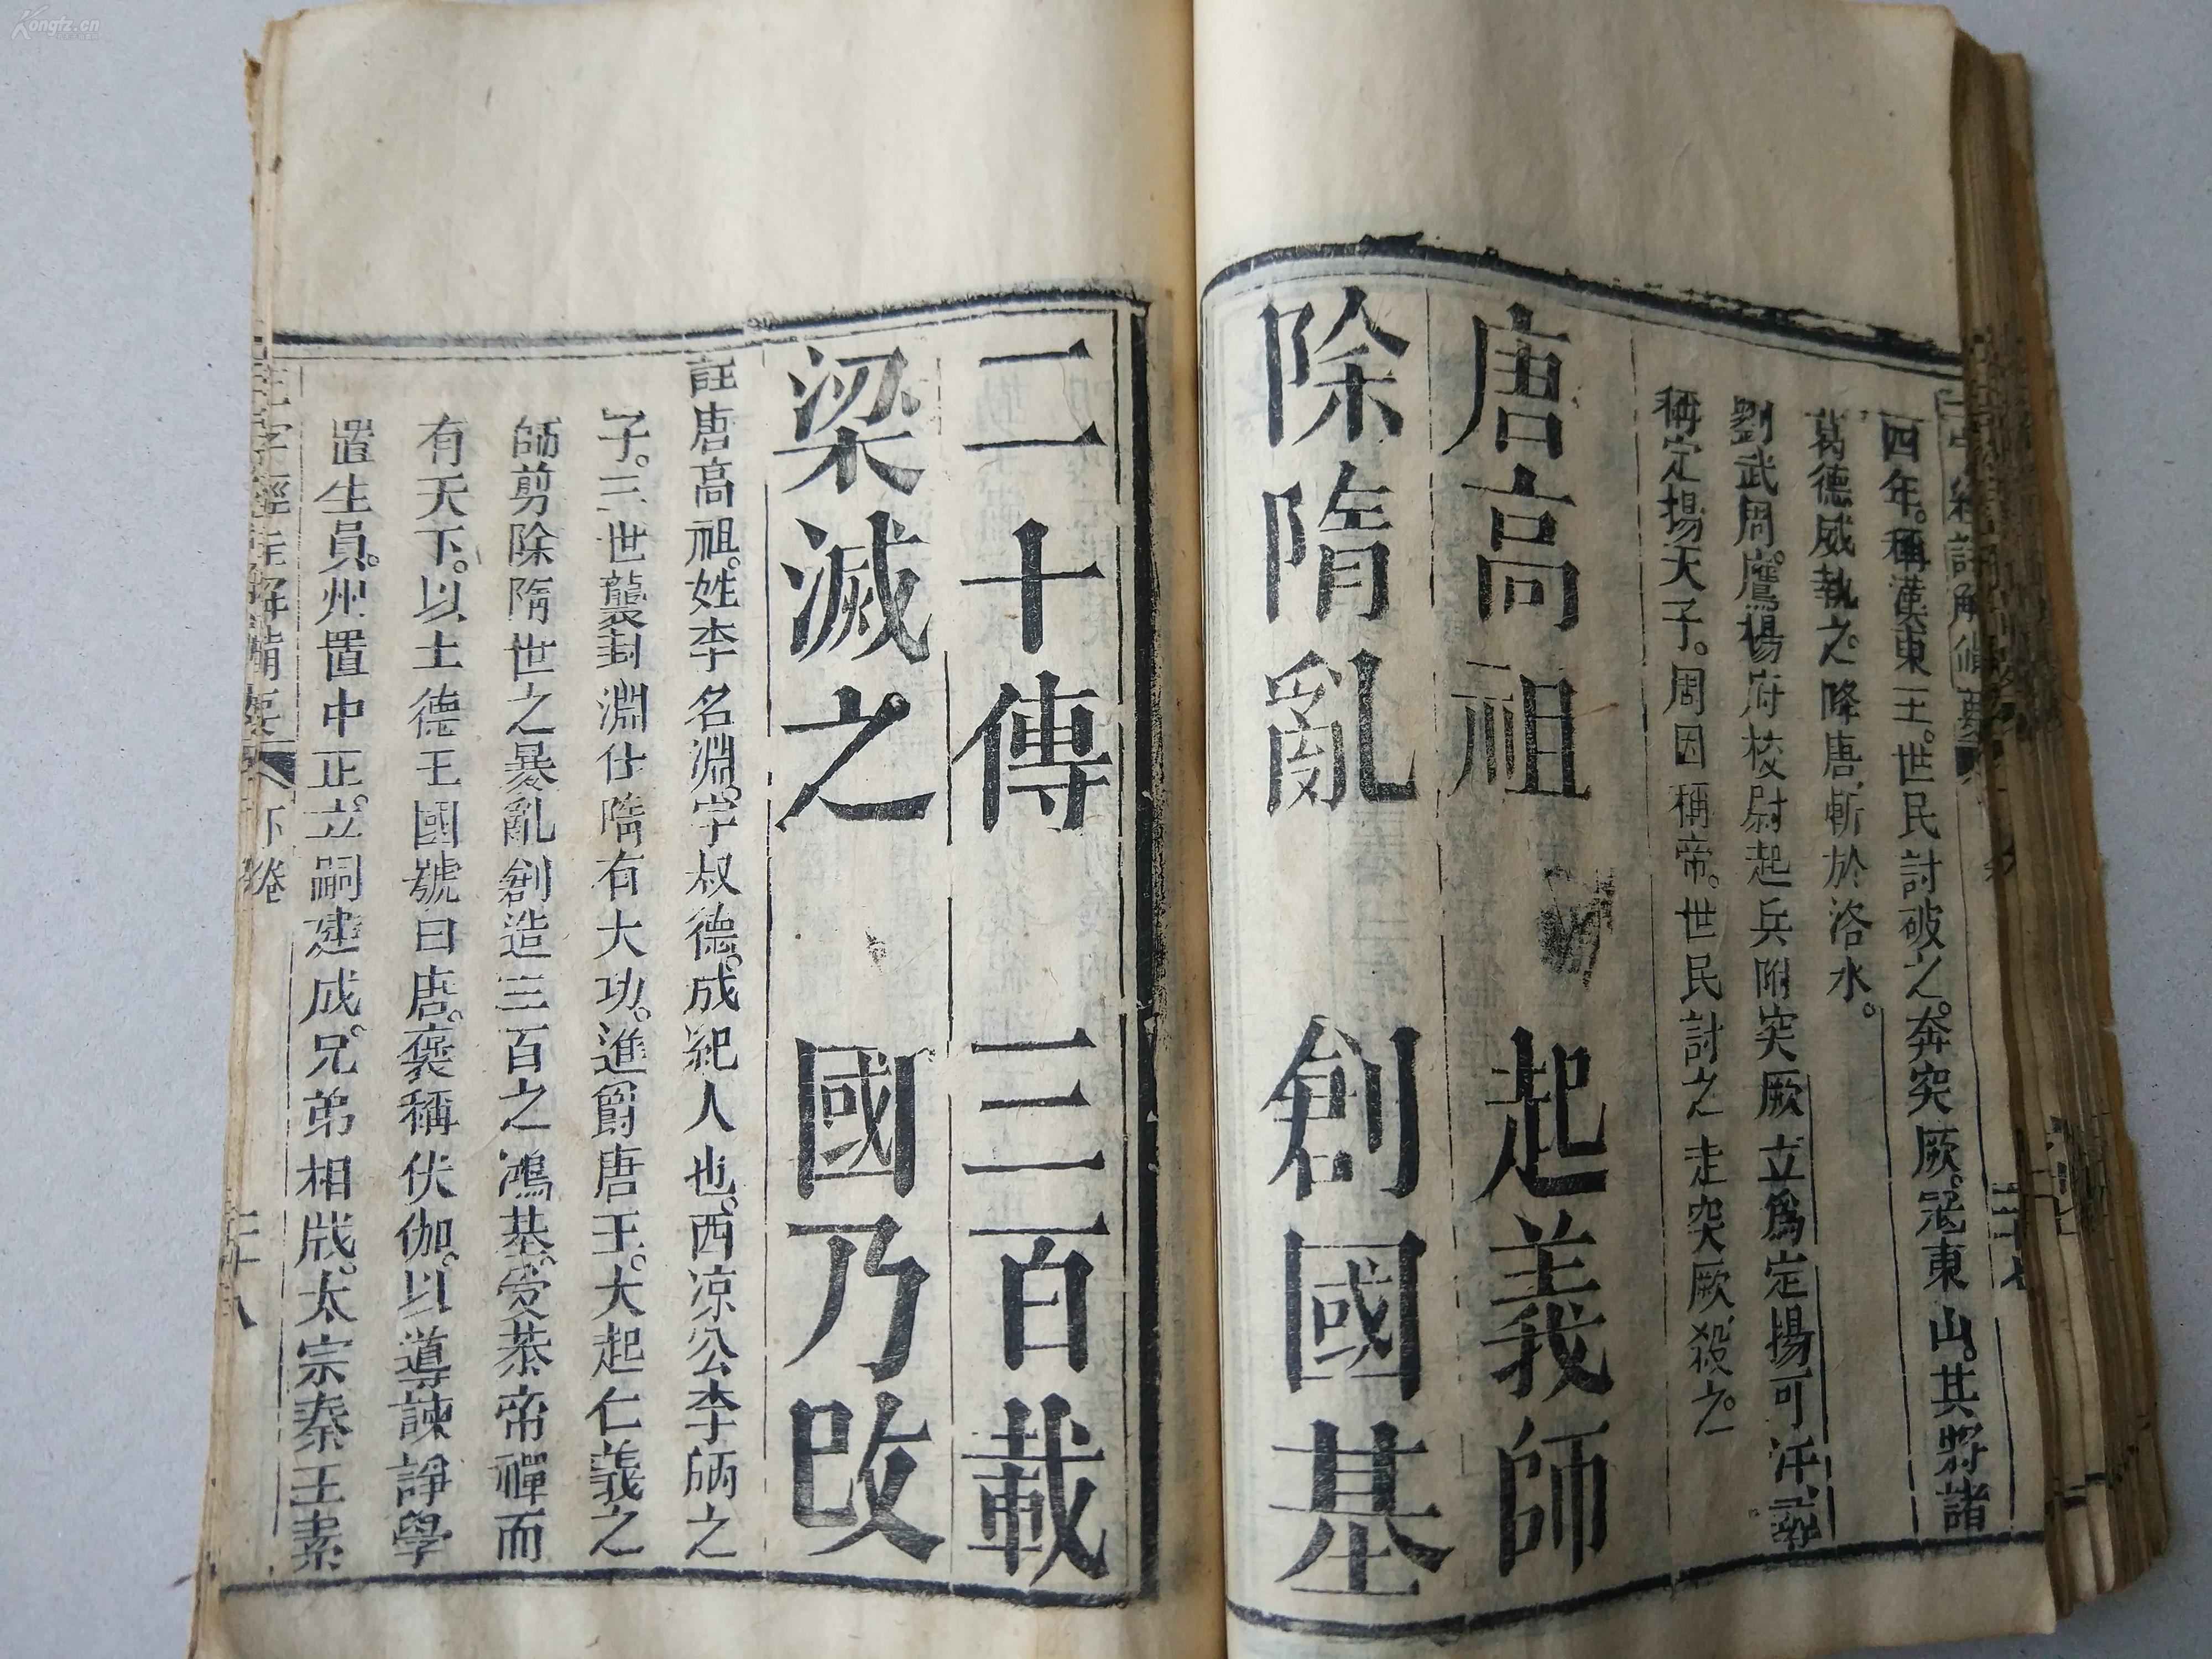 四年。稱漢東王。世民討破之。奔突厥。冦東山。其將諸
葛德威執之。降唐斬於洛水。
劉武周。鷹揚府校尉起兵附突厥立爲定揚可汗
稱定揚天子。周因稱帝。世民討之走突厥殺之。
唐高祖 起義師
除隋亂 創國基
二十傳 三百載
梁滅之 國乃改
註唐高祖。姓李名淵。字叔德。成紀人也。西凉公李㫤之
子。三世襲封淵仕隋有大功。進爵唐王。大起仁義之
師剪除隋世之暴亂創造三百之鴻基。受恭帝禪而
有天下。以土德王國號曰唐。褒稱伏伽。以導諫諍學
置生員。州置中正。立嗣建成。兄弟相戕。太宗秦王素
三字經註解備要 下卷 二十八
Kongfz.cn